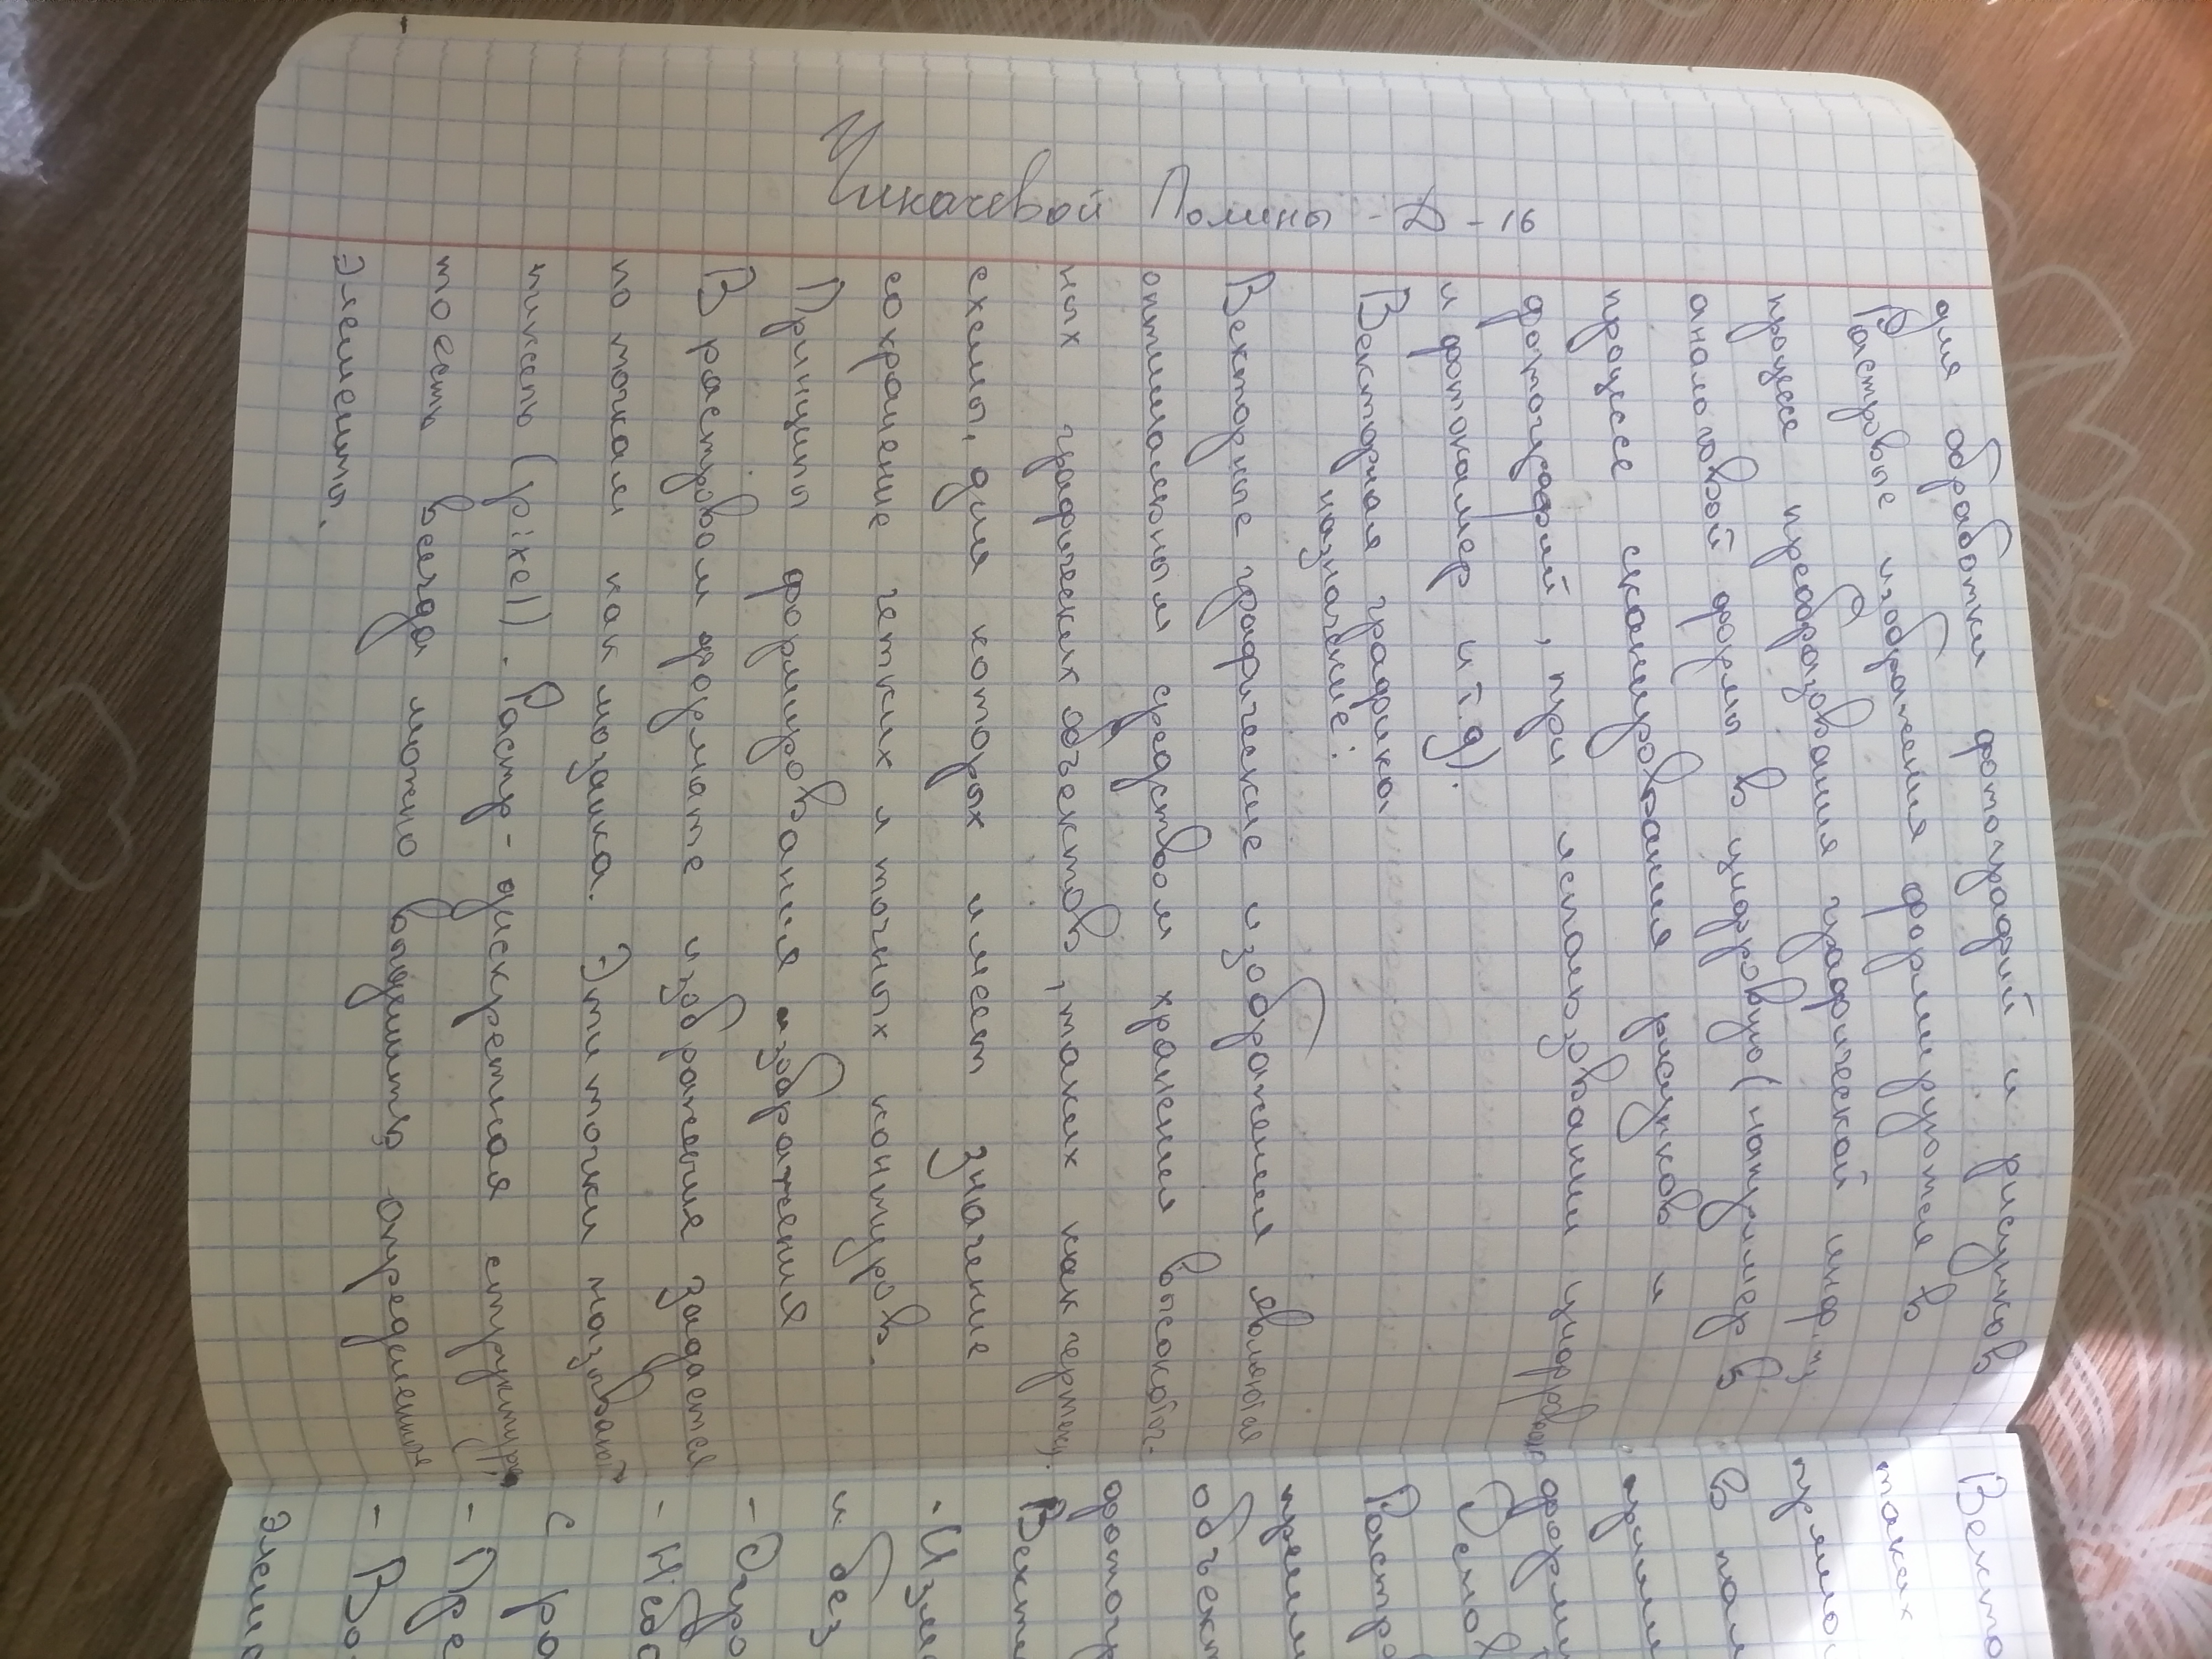 Чикачевой Полины - Д - 16
для обработки фотографий и рисунков
Растровые изображения формируются в
процессе преобразования графической инф. из
аналоговой формы в цифровую (например в
процессе сканирования рисунков и
фотографий, при использовании цифровых
и фотокамер и т.д).
Векторная графика
назначение:
Векторные графические изображения являются
оптимальным средством хранения высокоточ-
ных графических объектов, таких как чертежи,
схемы, для которых имеет значение
сохранение четких и точных контуров.
Принципы формирования изображения
В растровом формате изображение задается
по точкам как мозаика. Эти точки называют
пиксель (pixel). Растр - дискретная структура,
тоесть всегда можно выделить определенные
элементы.
Векто
таких
прямо
В пол
прими
форми
Основ
Растро
прими
объект
фотогр
Векто
- Изме
и без
- Огро
- Небо
с ра
- Пре
- Во
элемо